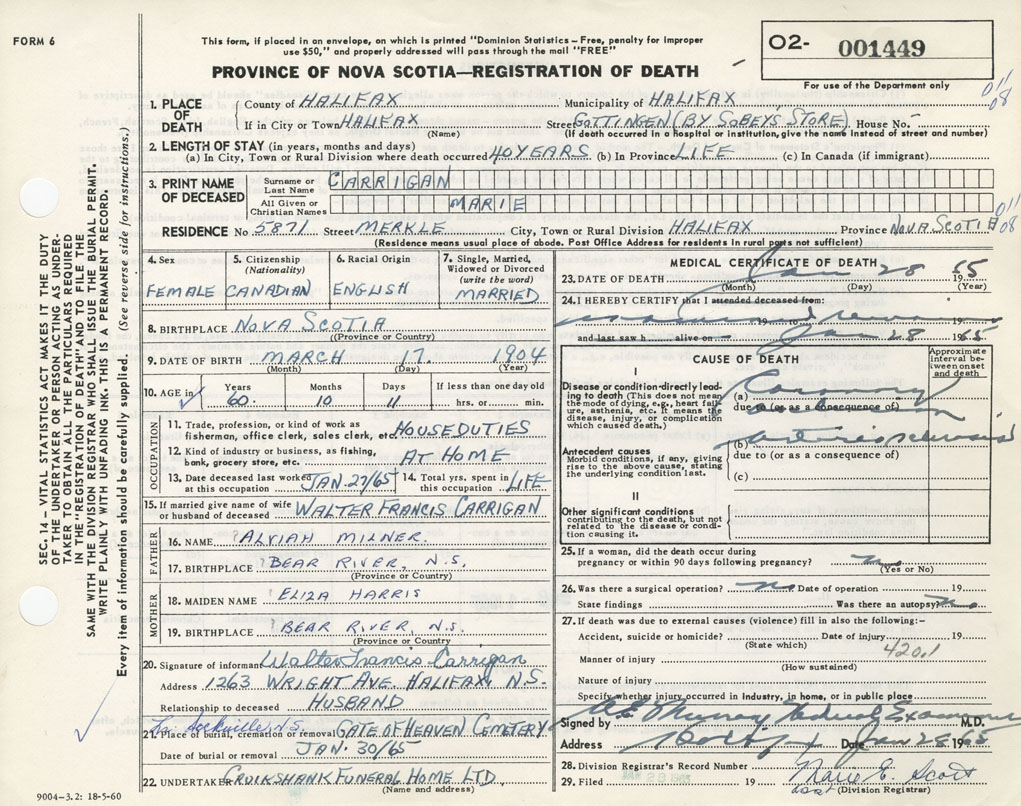 FORM 6
This form, if placed in an envelope, on which is printed "Dominion Statistics – Free, penalty for improper
use $50," and properly addressed will pass through the mail "FREE"
PROVINCE OF NOVA SCOTIA—REGISTRATION OF DEATH
02- 001449
For use of the Department only
SEC. 14 – VITAL STATISTICS ACT MAKES IT THE DUTY
OF THE UNDERTAKER OR PERSON ACTING AS UNDER-
TAKER TO OBTAIN ALL THE PARTICULARS REQUIRED
IN THE "REGISTRATION OF DEATH" AND TO FILE THE
SAME WITH THE DIVISION REGISTRAR WHO SHALL ISSUE THE BURIAL PERMIT.
WRITE PLAINLY WITH UNFADING INK. THIS IS A PERMANENT RECORD.
Every item of information should be carefully supplied. (See reverse side for instructions.)
1. PLACE OF DEATH
County of HALIFAX Municipality of HALIFAX
If in City or Town HALIFAX Street GOTTINGEN (BY SOBEYS STORE) House No. –
(Name) (If death occurred in a hospital or institution, give the name instead of street and number)
2. LENGTH OF STAY (in years, months and days)
(a) In City, Town or Rural Division where death occurred 40 YEARS (b) In Province LIFE (c) In Canada (if immigrant)
3. PRINT NAME OF DECEASED
Surname or Last Name CARRIGAN
All Given or Christian Names MARIE
RESIDENCE No 5871 Street MERKLE City, Town or Rural Division HALIFAX Province NOVA SCOTIA
(Residence means usual place of abode. Post Office Address for residents in rural parts not sufficient)
011
08
011
08
4. Sex FEMALE
5. Citizenship (Nationality) CANADIAN
6. Racial Origin ENGLISH
7. Single, Married, Widowed or Divorced (write the word) MARRIED
8. BIRTHPLACE NOVA SCOTIA
(Province or Country)
9. DATE OF BIRTH MARCH 17. 1904
(Month) (Day) (Year)
10. AGE in Years 60. Months 10 Days 11 If less than one day old hrs. or min.
OCCUPATION
11. Trade, profession, or kind of work as
fisherman, office clerk, sales clerk, etc. HOUSEDUTIES
12. Kind of industry or business, as fishing,
bank, grocery store, etc. AT HOME
13. Date deceased last worked at this occupation JAN. 27/65 14. Total yrs. spent in this occupation LIFE
15. If married give name of wife or husband of deceased WALTER FRANCIS CARRIGAN
FATHER
16. NAME ALVIAH MILNER.
17. BIRTHPLACE BEAR RIVER, N.S.
(Province or Country)
MOTHER
18. MAIDEN NAME ELIZA HARRIS
19. BIRTHPLACE BEAR RIVER, N.S.
(Province or Country
20. Signature of informant Walter Francis Carrigan
Address 1263 WRIGHT AVE. HALIFAX, N.S.
Relationship to deceased HUSBAND
Sackville, N.S.
21. Place of burial, cremation or removal GATE OF HEAVEN CEMETERY
Date of burial or removal JAN. 30/65
22. UNDERTAKER CRUIKSHANK FUNERAL HOME LTD.
(Name and address)
9004-3.2: 18-5-60
MEDICAL CERTIFICATE OF DEATH
23. DATE OF DEATH Jan 28 1965
(Month) (Day) (Year)
24. I HEREBY CERTIFY that I attended deceased from:
19
and last saw h alive on Jan 28 1965
CAUSE OF DEATH
Approximate interval between onset and death
I
Disease or condition directly lead-
ing to death (This does not mean
the mode of dying, e.g., heart fail-
ure, asthenia, etc. It means the
disease, injury, or complication
which caused death.)
(a) Coronary occlusion
due to (or as a consequence of)
Antecedent causes
Morbid conditions, if any, giving
rise to the above cause, stating
the underlying condition last.
(b) arteriosclerosis
due to (or as a consequence of)
(c)
II
Other significant conditions
contributing to the death, but not
related to the disease or condi-
tion causing it.
25. If a woman, did the death occur during
pregnancy or within 90 days following pregnancy? no
(Yes or No)
26. Was there a surgical operation? no Date of operation 19
State findings Was there an autopsy? no
27. If death was due to external causes (violence) fill in also the following:–
Accident, suicide or homicide? Date of injury 19
(State which) 420.1
Manner of injury
(How sustained)
Nature of injury
Specify whether injury occurred in industry, in home, or in public place
Signed by Murray Medical Examiner M.D.
Address Date Jan 28 1965
28. Division Registrar's Record Number
29. Filed 19 Marie E. Scott
(Division Registrar)